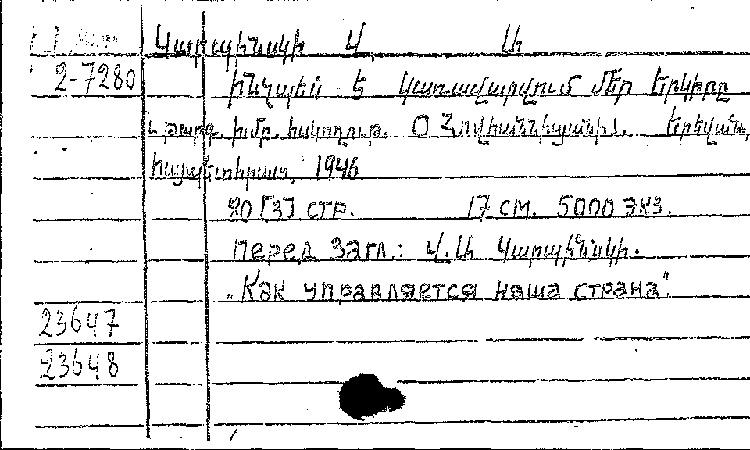 Կարպինսկի Վ Ա
2-7280 Ինչպես է կառավարվում մեր երկիրը
թարգ. խմբ. Հովհաննիսյանի. Երևան,
Հայպետհրատ, 1946
90 [3] стр. 17 см. 5000 экз.
Перед загл.: Վ. Ա Կարպինսկի.
„Как управляется наша страна"
23647
23648